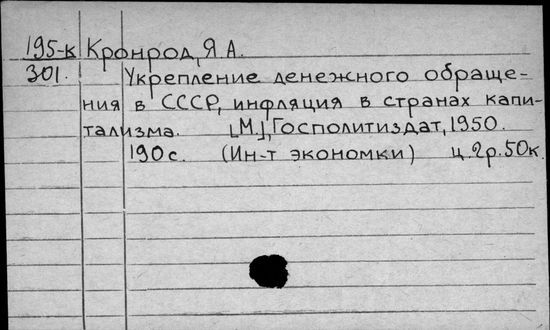 195-к Кронрод, Я.А.
301. Укрепление денежного обраще-
ния в СССР, инфляция в странах капи-
тализма. [М.], Госполитиздат, 1950.
190 с. (Ин-т экономки) ц. 2р. 50к.